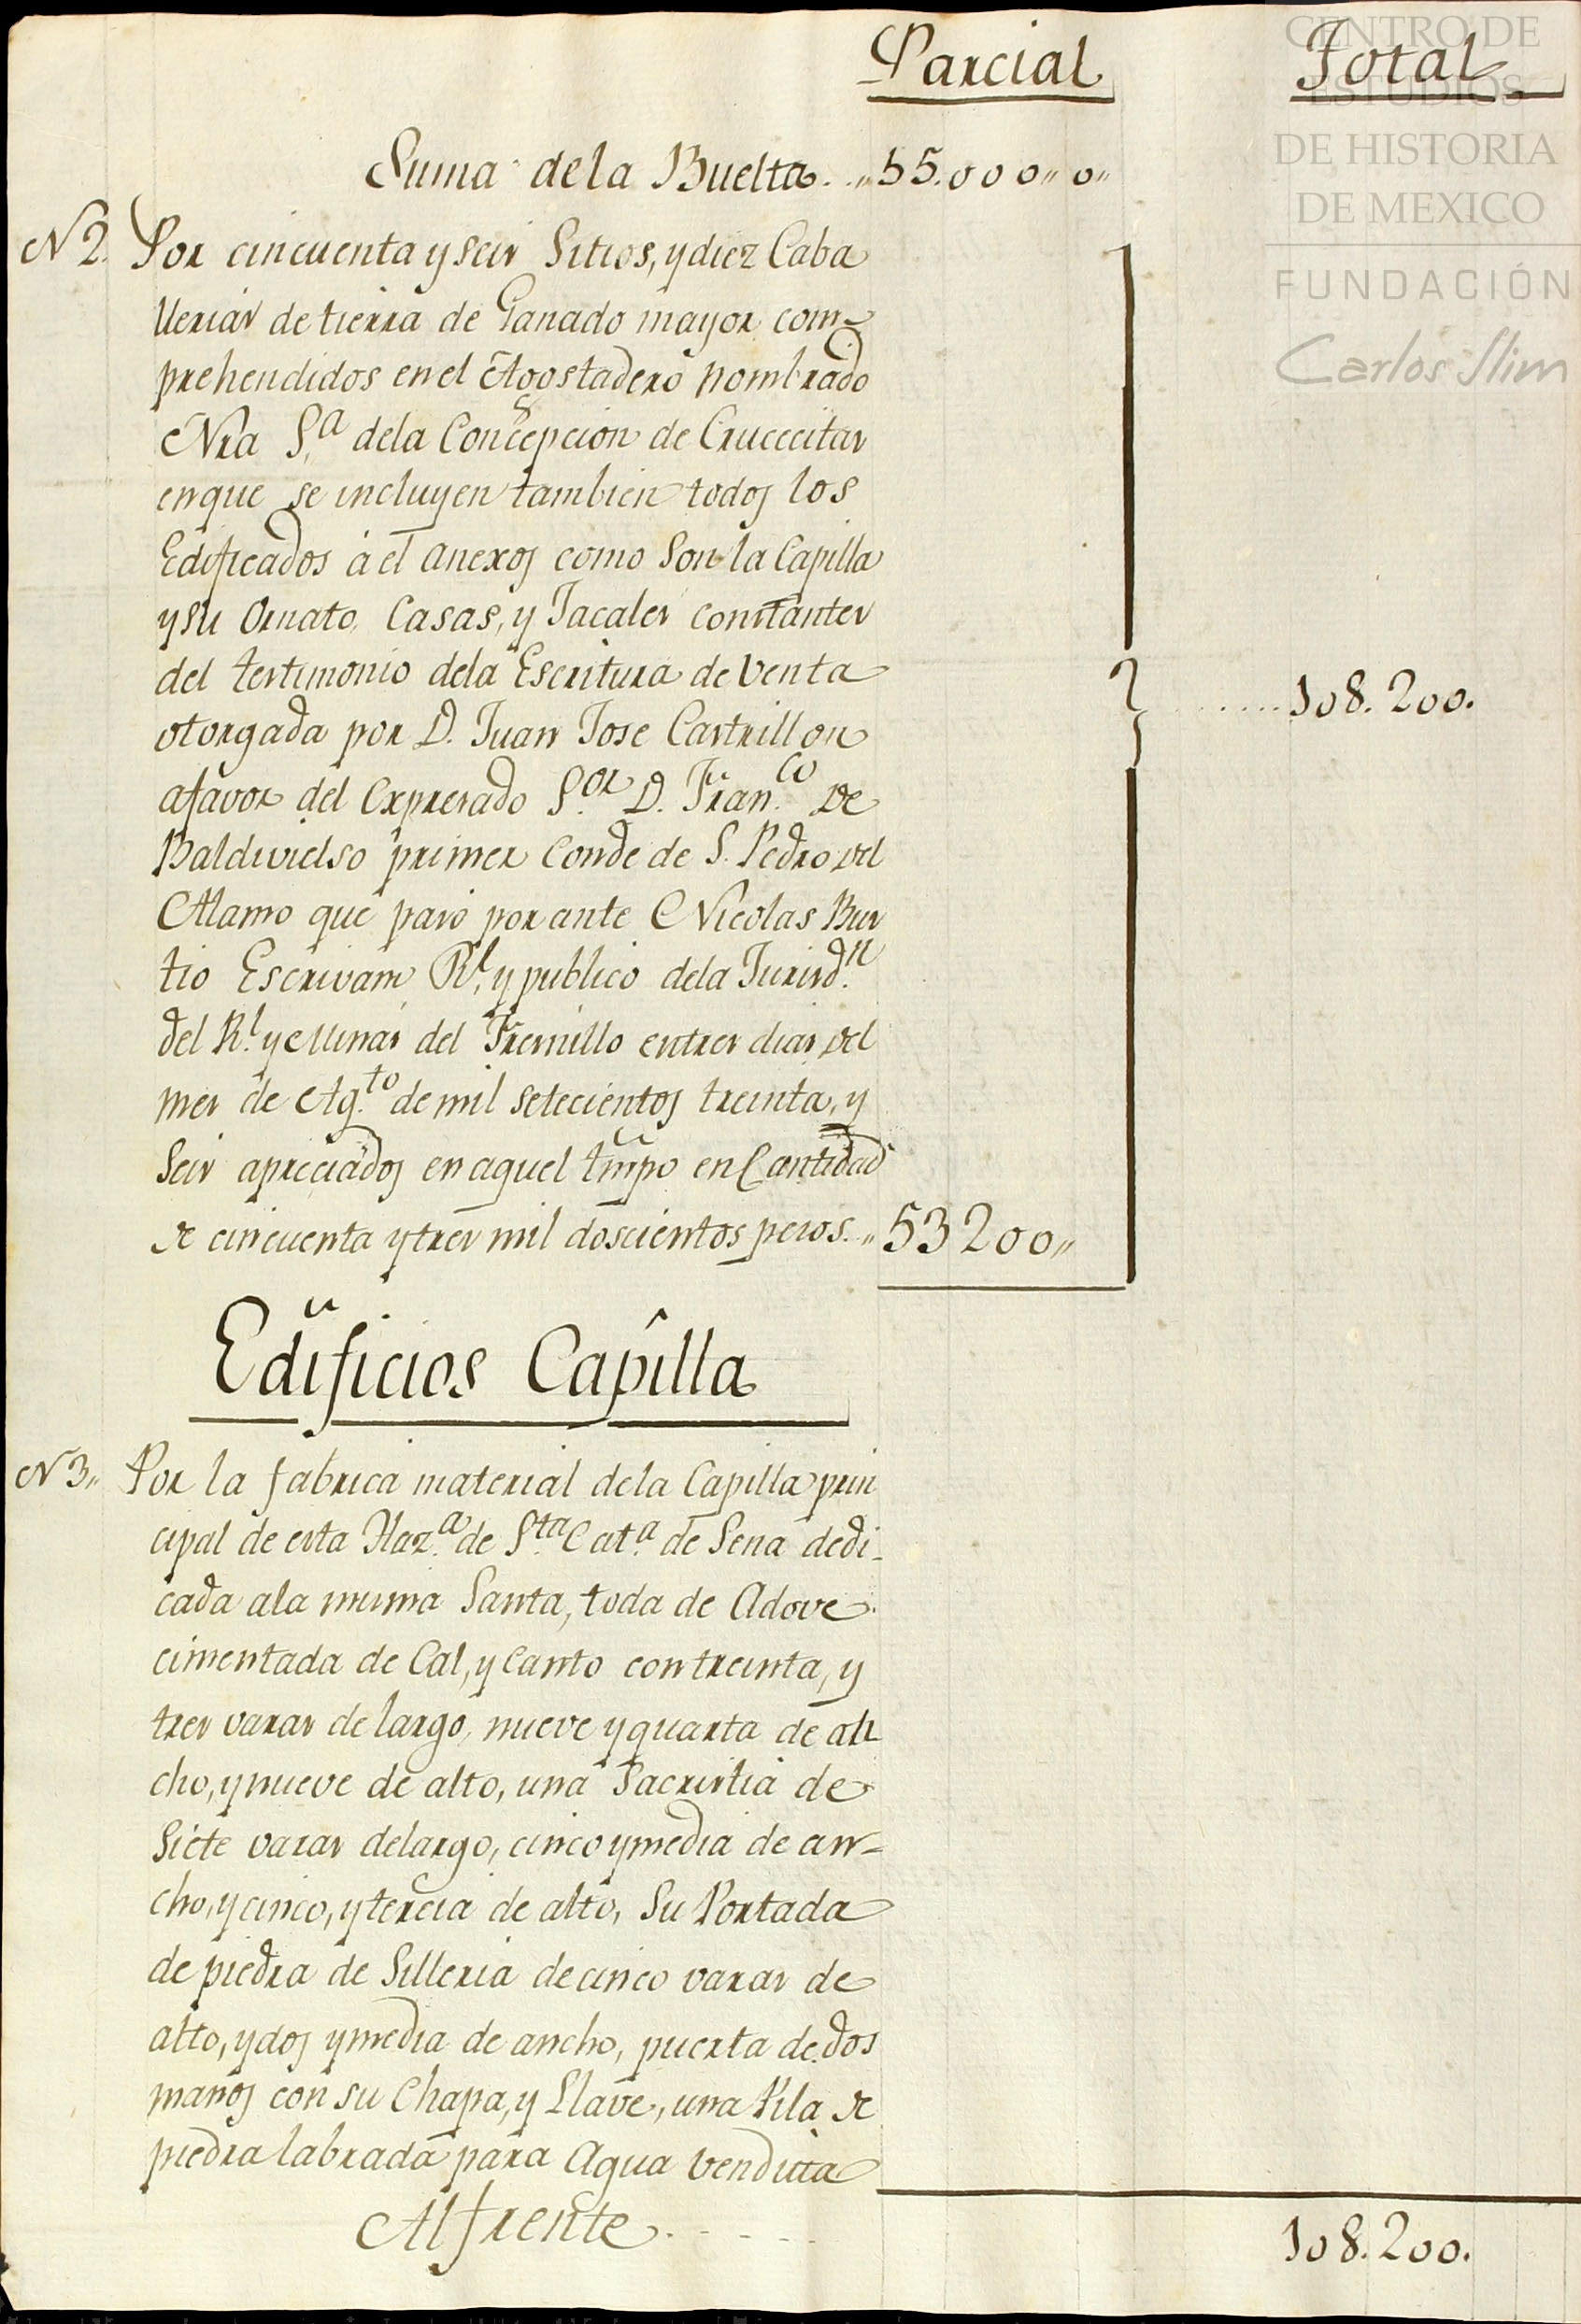 Parcial Total
CENTRO DE
ESTUDIOS
DE HISTORIA
DE MEXICO
FUNDACIÓN
Carlos Slim
Suma de la Buelta..,,55.000,,0,,
N 2. Por cincuenta y seis Sitios, y diez Caba
llerias de tierra de Ganado mayor com-
prehendidos en el Agostadero nombrado
Nra S.a dela Concepcion de Crucecitas
en que se incluyen tambien todos los
Edificados á el anexos como son la Capilla
y su Ornato, Casas, y Jacales constantes
del testimonio dela Escritura de Venta
otorgada por D. Juan Jose Castrillon
108.200.
a favor del Expresado S.or D. Fran.co de
Baldivielso primer Conde de S. Pedro del
Alamo que pasó por ante Nicolas Bus
tio Escrivano Rl. y publico dela Jurisd.n
del Rl. y Minas del Fresnillo en tres dias del
mes de Ag.to de mil setecientos treinta, y
seis apreciados en aquel tiẽmpo en Cantidad
de cincuenta y tres mil doscientos pesos.,,53200,,
Edificios Capilla
N 3,, Por la fabrica material dela Capilla prin
cipal de esta Haz.a de S.ta Cat.a de Sena dedi-
cada ala misma Santa, toda de Adove
cimentada de Cal, y Canto con treinta, y
tres varas de largo, nueve y quarta de an
cho, y nueve de alto, una Sacristia de
Siete varas de largo, cinco y media de an-
cho, y cinco, y tercia de alto, Su Portada
de piedra de Silleria de cinco varas de
alto, y dos y media de ancho, puerta de dos
manos con su Chapa, y Llave, una Pila de
piedra labrada para Agua vendita
Al frente..... 108.200.